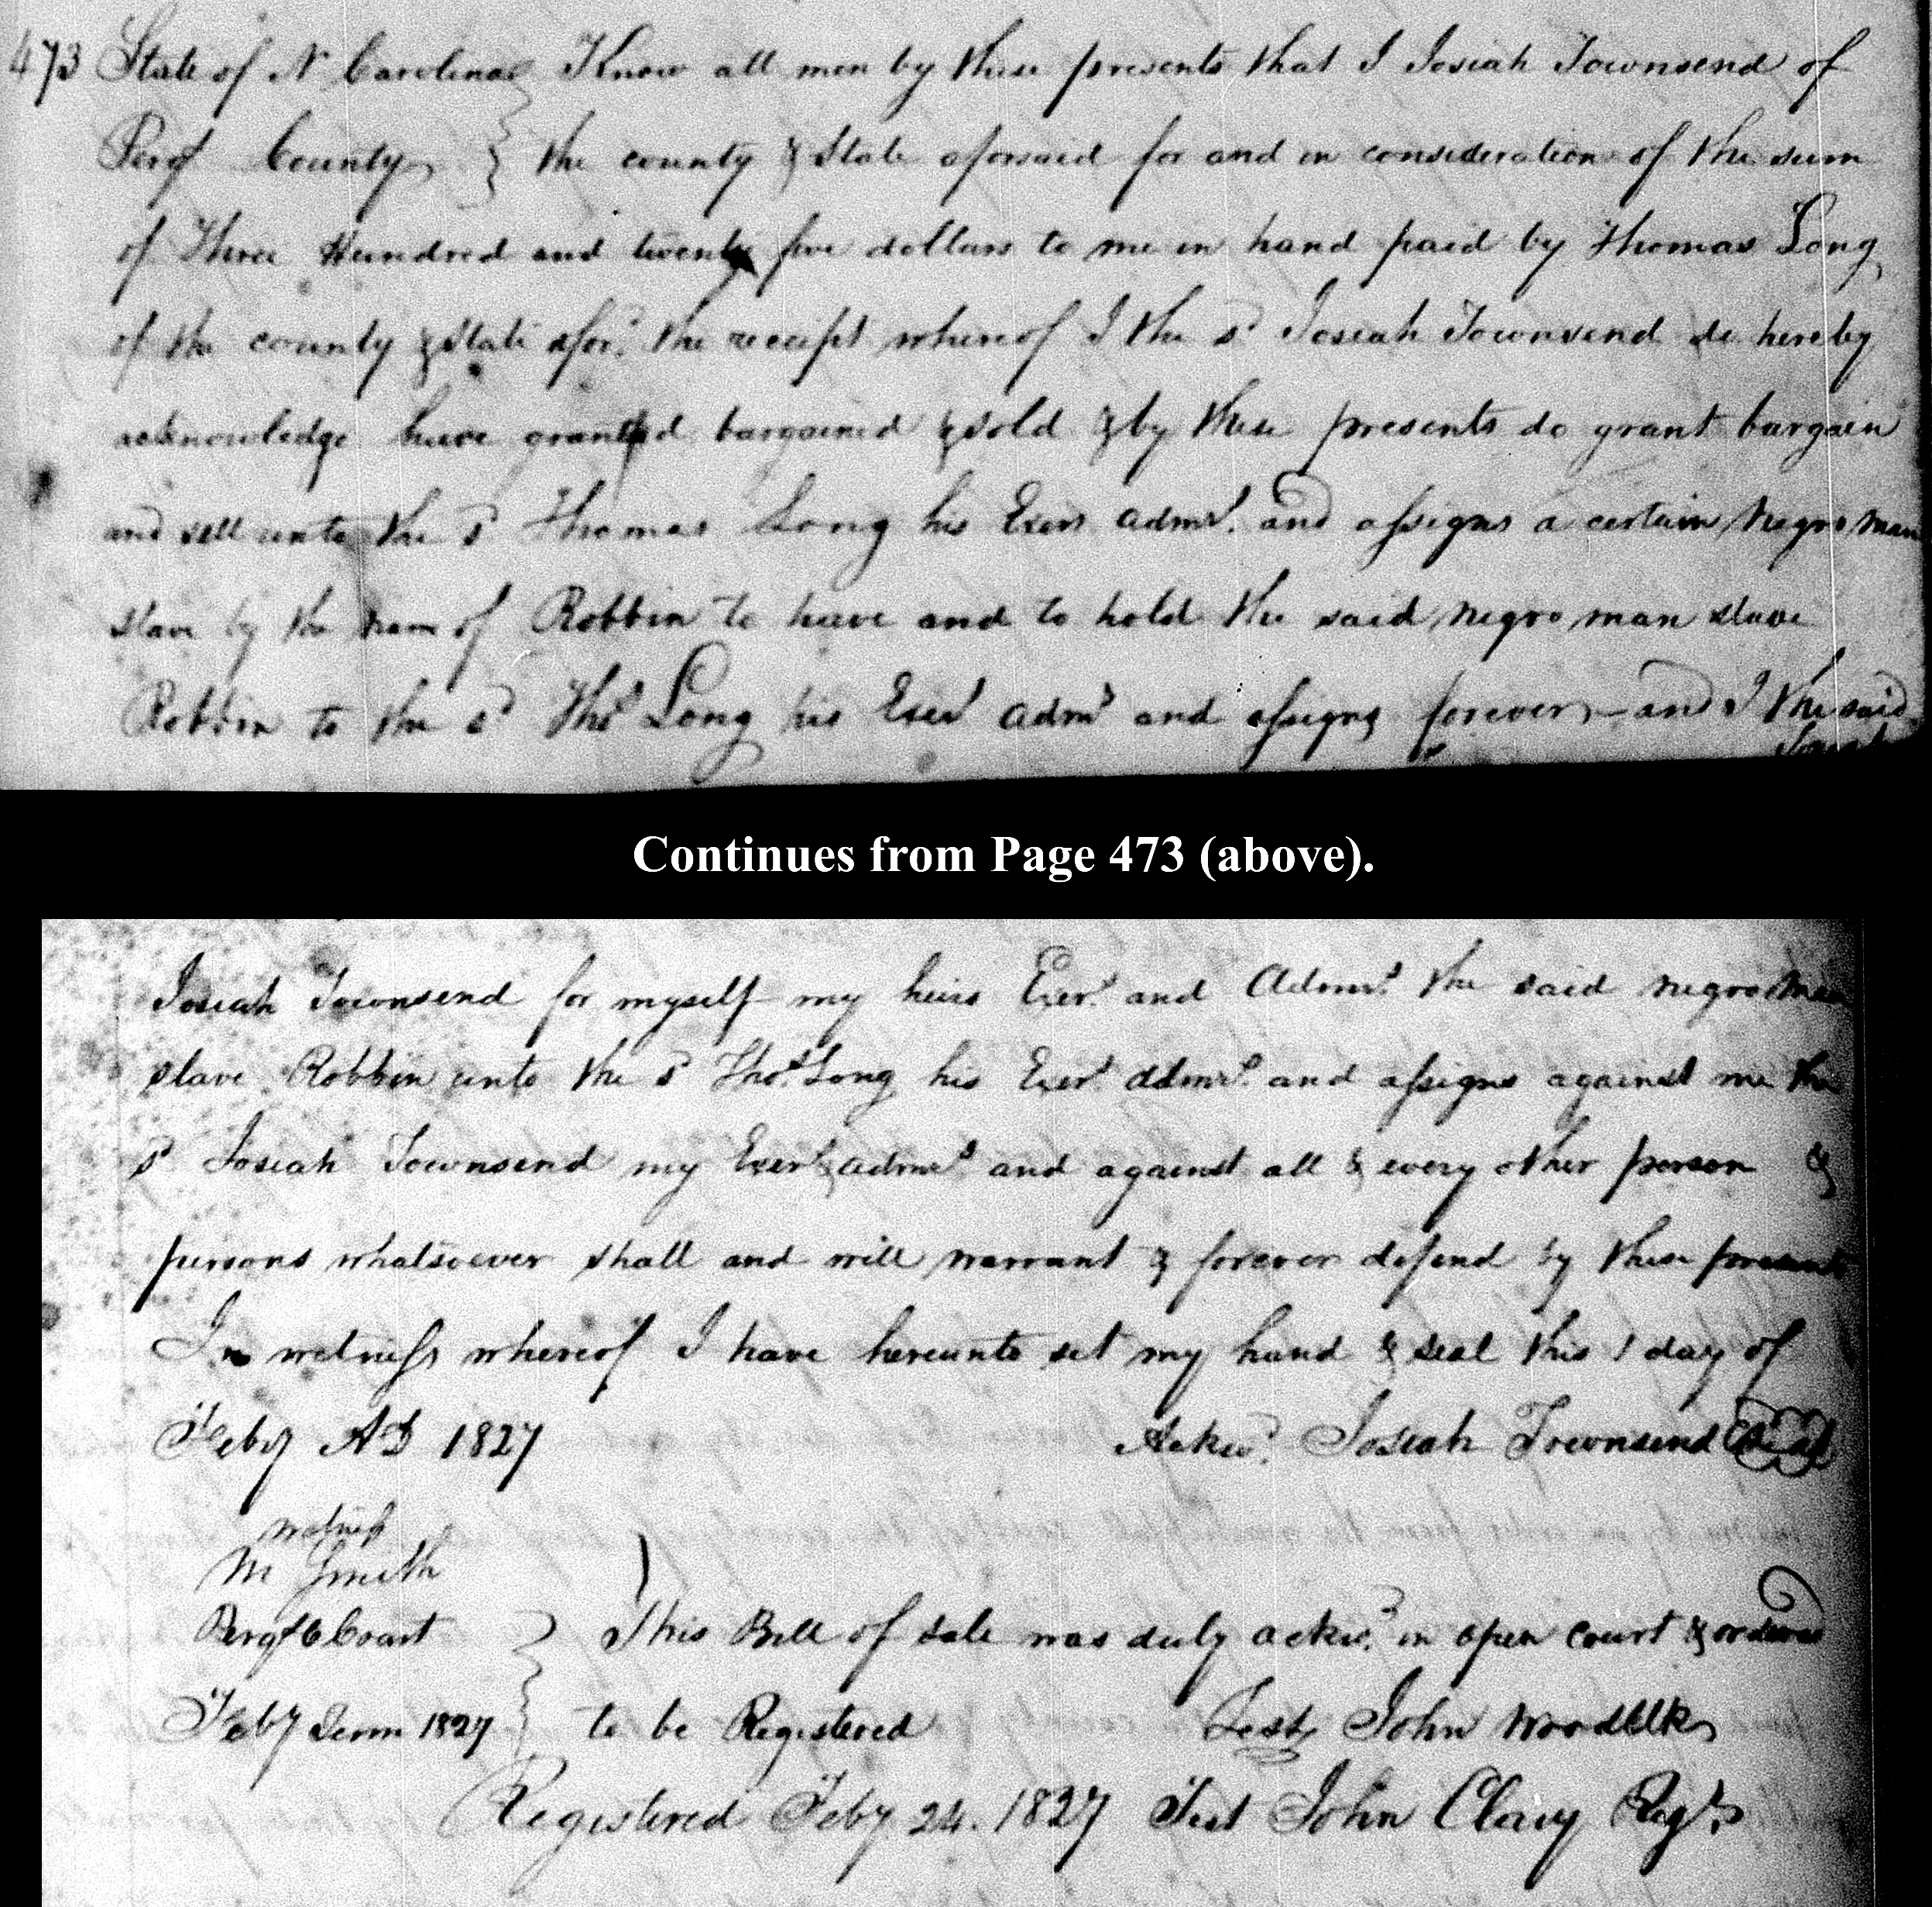 473 State of N Carolina } Know all men by these presents that I Josiah Townsend of
Perqs County } the county & State aforsaid for and in consideration of the sum
of Three Hundred and twenty five dollars to me in hand paid by Thomas Long
of the county & State afors.d the receipt whereof I the sd Josiah Townsend do hereby
acknowledge have granted bargained & sold & by these presents do grant bargain
and sell unto the sd Thomas Long his Exers admrs. and assigns a certain negro man
slave by the nam of Robbin to have and to hold the said negro man slave
Robbin to the sd Thos Long his Exers admrs and assigns forever, – and I the said
Josiah
Continues from Page 473 (above).
Josiah Townsend for myself my heirs Exers and Admrs. the said negro man
slave Robbin unto the sd Thos. Long his Exers admrs. and assigns against me the
sd Josiah Townsend my Exers & admrs and against all & every other person &
persons whatsoever shall and will warrant & forever defend by these presents
In witness whereof I have hereunto set my hand & seal this 1 day of
Feby AD 1827 Ackd. Josiah Townsend Seal
witness
M Smith
Perqs C Court } This Bill of sale was duly ackd. in open court & ordered
Feby Term 1827 } to be Registered Test John Wood Clk
Registered Feby 24. 1827 Test John Clary Regr.